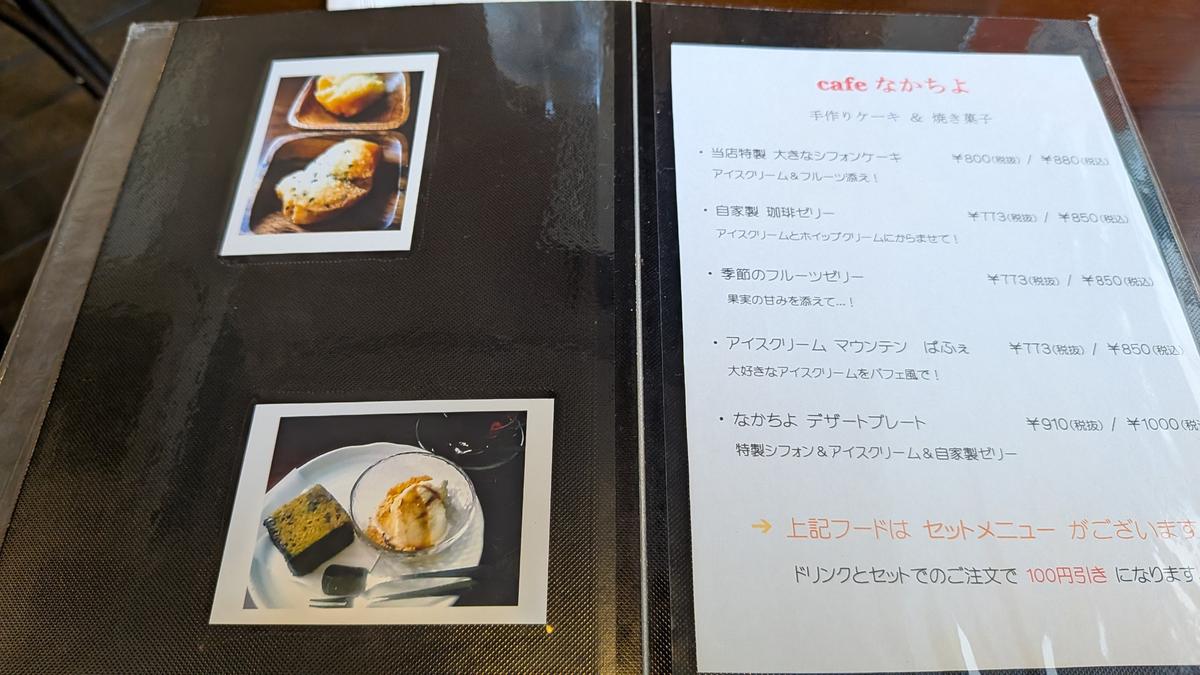 cafe なかちよ
手作りケーキ & 焼き菓子
・当店特製 大きなシフォンケーキ ¥800(税抜) / ¥880(税込)
アイスクリーム&フルーツ添え!
・自家製 珈琲ゼリー ¥773(税抜) / ¥850(税込)
アイスクリームとホイップクリームにからませて!
・季節のフルーツゼリー ¥773(税抜) / ¥850(税込)
果実の甘みを添えて...!
・アイスクリーム マウンテン ぱふぇ ¥773(税抜) / ¥850(税込)
大好きなアイスクリームをパフェ風で!
・なかちよ デザートプレート ¥910(税抜) / ¥1000(税
特製シフォン&アイスクリーム&自家製ゼリー
→ 上記フードは セットメニュー がございます
ドリンクとセットでのご注文で 100円引き になります